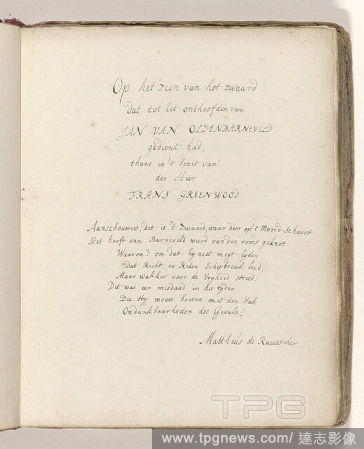 Op het zien van het zwaard
dat tot het onthoofden van
JAN VAN OLDENBARNEVELD
gedient had,
thans in 't bezit van
den Heer
FRANS GREENWOOD.
Aanschouwer, dit is 't Zwaard, waar door op 't Moord-Schavot
Het hooft van Barneveld wierd van den romp geknot.
Waarom? om dat hy niet mogt lyden
Dat Recht en Reden Schipbreuk leed,
Maar wakker voor de Vryheid streed.
Dit was een misdaad in die tyden
Die Hy moest boeten met den Hals
Ondankbaarheden des Gevals!
Mattheus de Ruusscher
TPG
www.tpgnews.com/ 達志影像